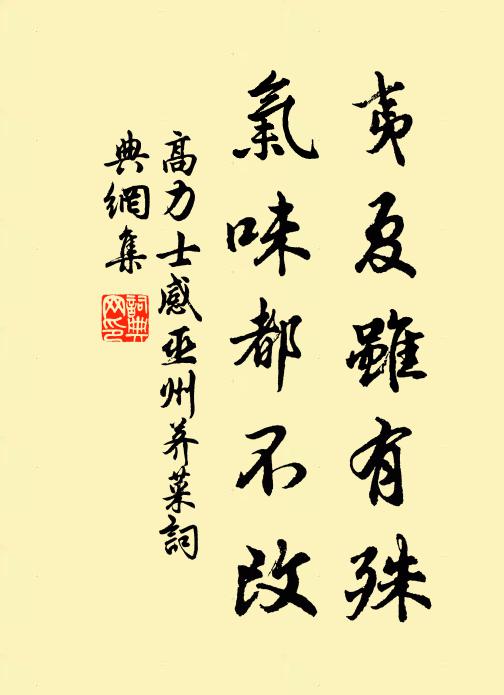 夷夏雖有殊
氣味都不改
高力士感巫州荠菜詞
典網集
詞典
网印